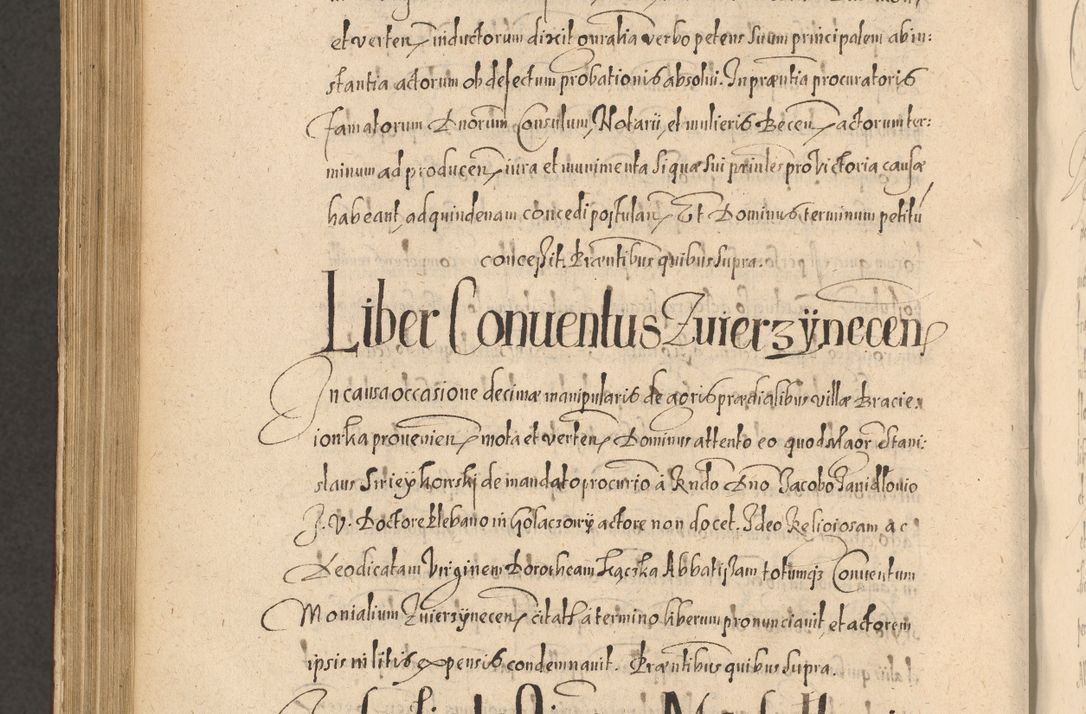 et verten, inductorum dixit oniralia verbo petens suum principalem ab in:
stantia actorum ob defectum probationis absolui. In præntia procuratoris
famatorum Dnorum Consulum, Notarii, et mulieris Becen, actorum ter:
minum ad producen, iura et munimenta si quæ sui prinles pro victoria causæ
habeant, ad quindenam concedi postulan, Et Dominus terminum petitū
concessit. Præntibus quibus supra.
Liber Conuentus Zuierzÿnecen
In causa occasione decimæ manipularis de agris prædialibus villæ
prouenien, mota et verten, Dominus attento eo quod Stani:
slaus de mandato procurio à Rndo Dno Jacobo Janidlouio
J. V. Doctore Plebano in Golaczowÿ actore non docet. Ideo Religiosam ac
Deodicatam Virginem Dorotheam Kączka Abbatissam totumqz Conuentum
Monialium Zuierzÿnecen, citatā à termino liberum pronunciauit, et actorem
ipsis in litis expensis condemnauit. Præntibus quibus supra.